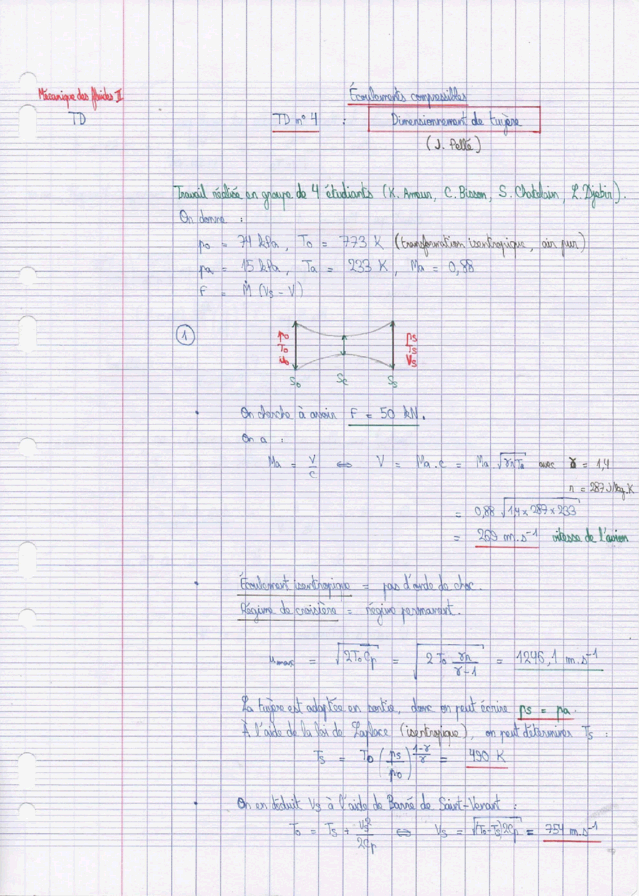 Mécanique des fluides II
Écoulements compressibles
TD
TD n° 4 : Dimensionnement de tuyère
(J. Pellé)
Travail réalisé en groupe de 4 étudiants (K. Ameur, C. Bisson, S. Chatelain, L. Djebir).
On donne :
p0 = 74 kPa, T0 = 773 K (transformation isentropique, air pur)
pa = 15 kPa, Ta = 233 K, Ma = 0,88
F = Ṁ (Vs - V)
1
p0 ps
T0 Ts
u0 Vs
S0 Sc Ss
• On cherche à avoir F = 50 kN.
On a :
Ma = V/c ⇔ V = Ma.c = Ma √(γrTa) avec γ = 1,4
r = 287 J/kg.K
= 0,88 √(1,4 × 287 × 233)
= 269 m.s⁻¹ vitesse de l'avion
• Écoulement isentropique = pas d'onde de choc.
Régime de croisière = régime permanent.
umax = √(2T0Cp) = √(2 T0 γr/(γ-1)) = 1246,1 m.s⁻¹
La tuyère est adaptée en sortie, donc on peut écrire ps = pa.
À l'aide de la loi de Laplace (isentropique), on peut déterminer Ts :
Ts = T0 (ps/p0)^((1-γ)/γ) = 490 K
• On en déduit Vs à l'aide de Barré de Saint-Venant :
T0 = Ts + Vs²/2Cp ⇔ Vs = √((T0-Ts)2Cp) = 754 m.s⁻¹